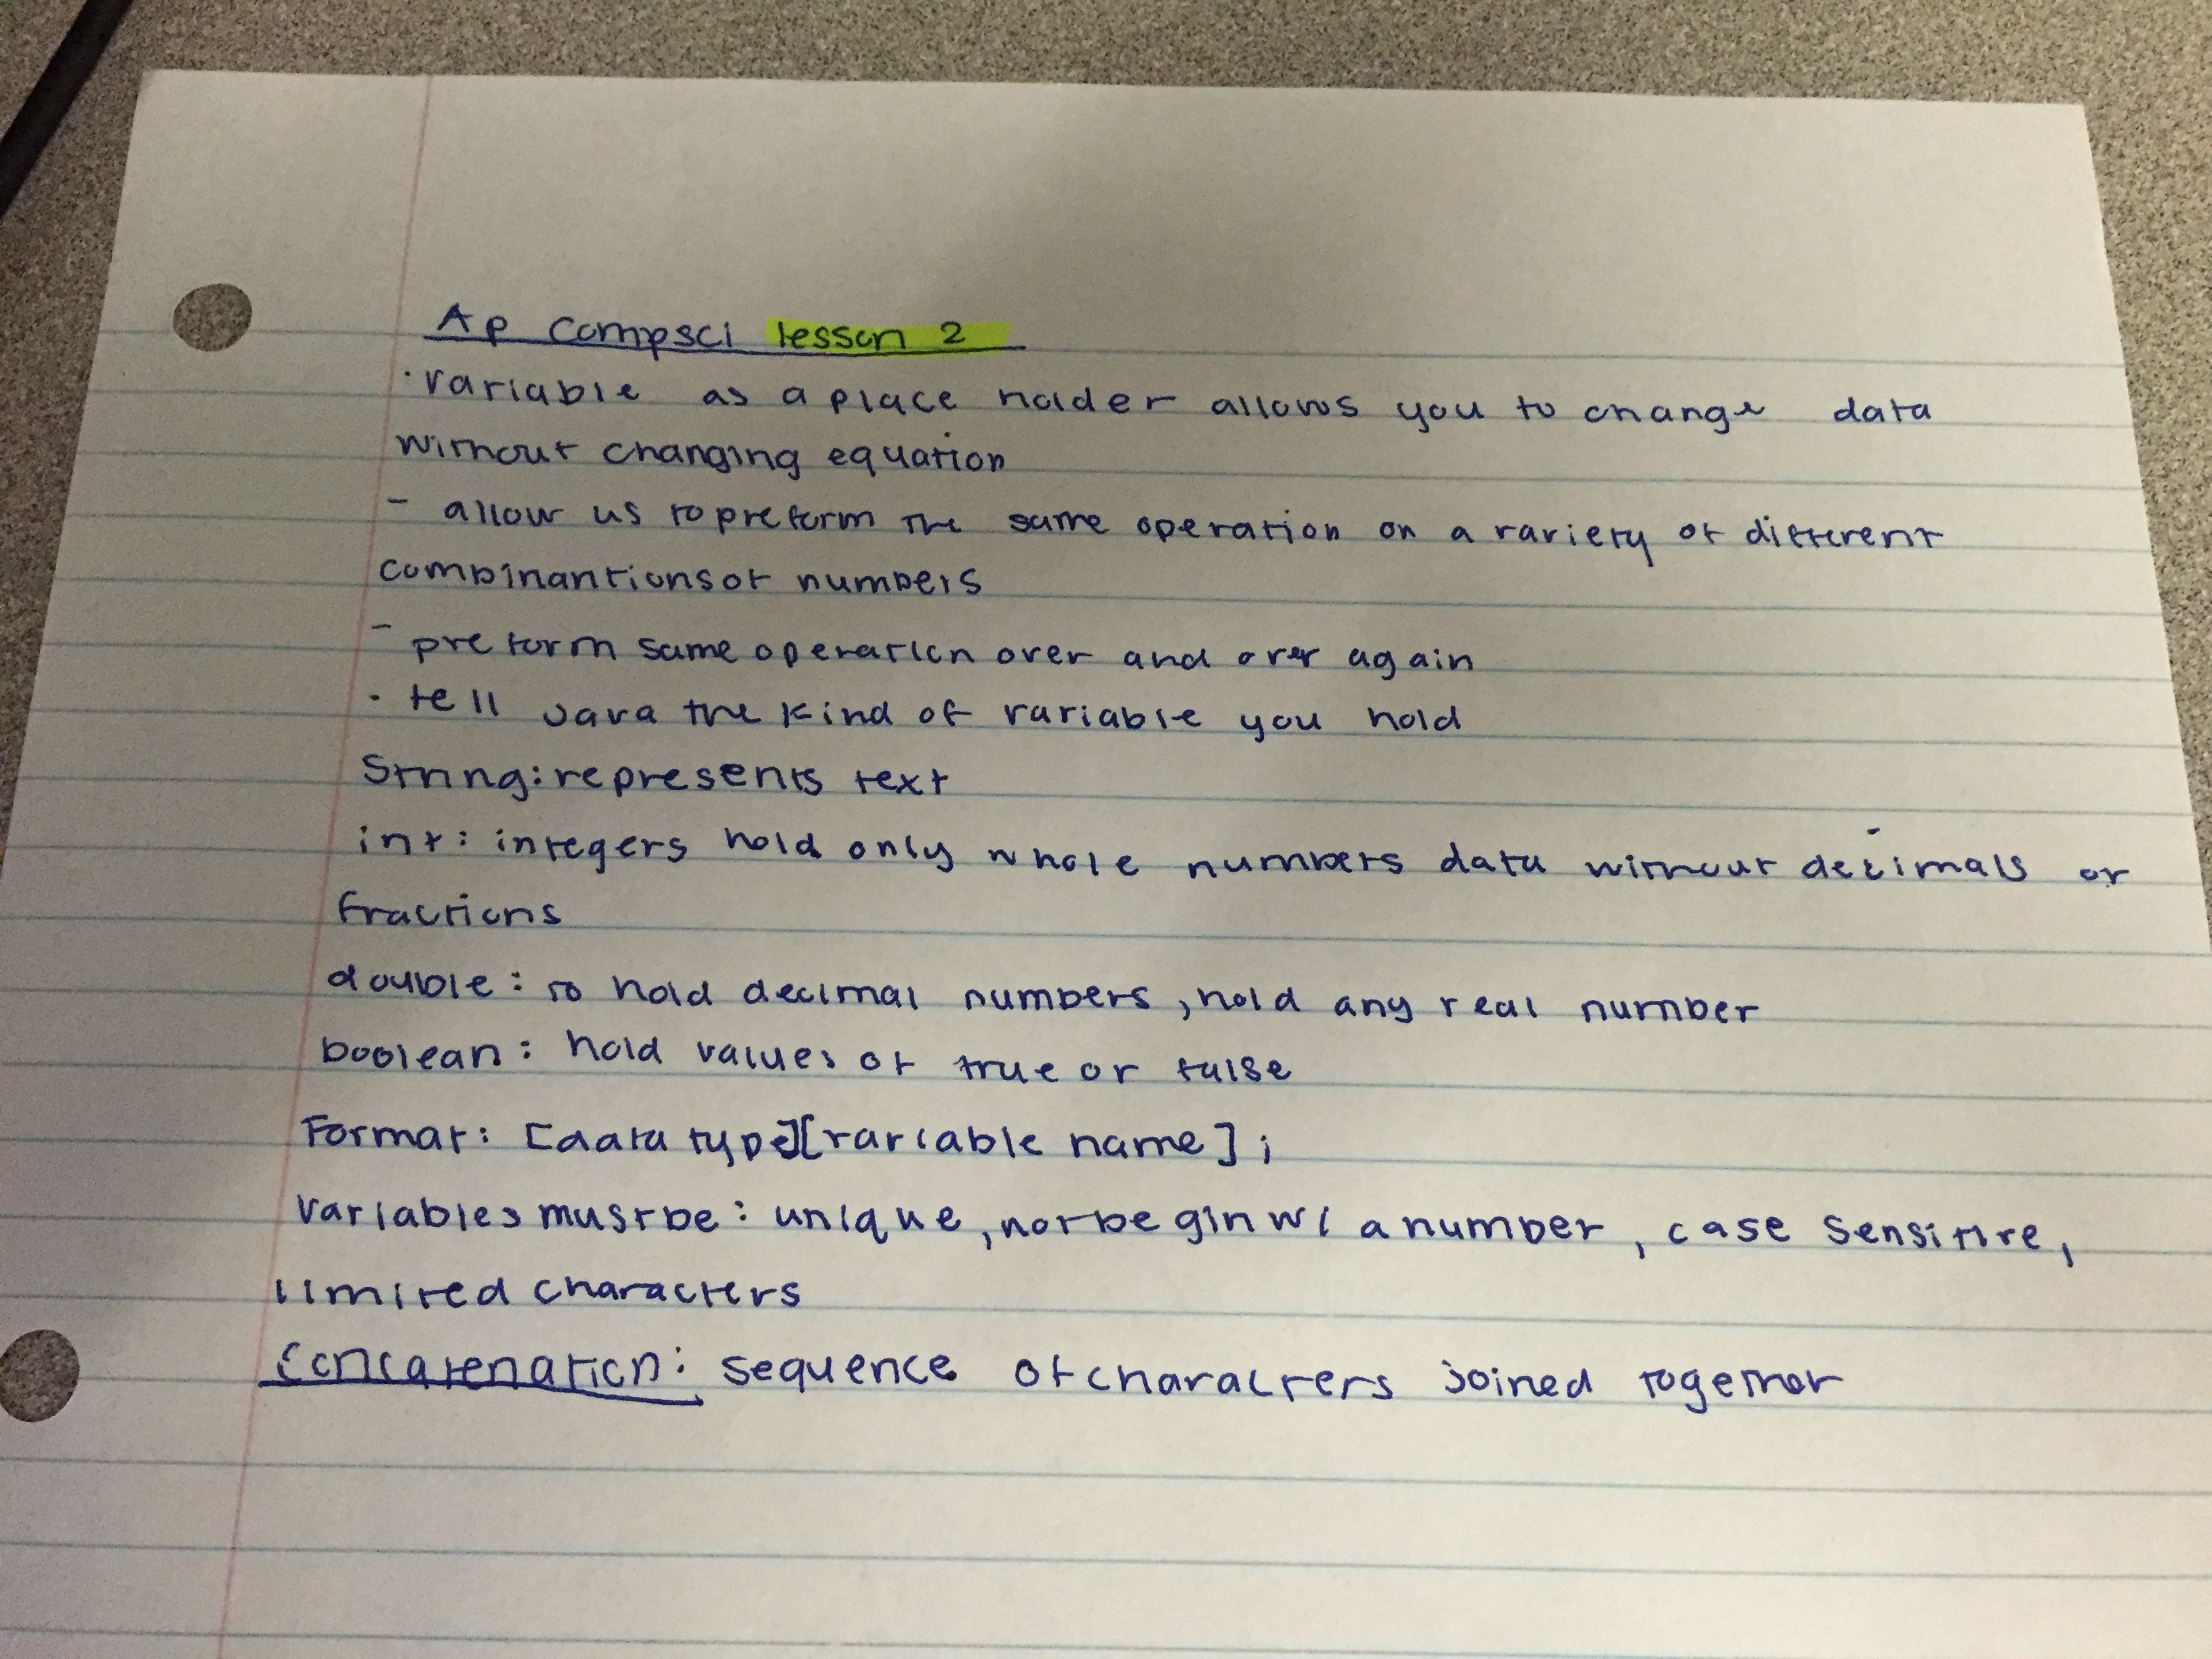 Ap Compsci lesson 2
· Variable as a place holder allows you to change data
without changing equation
- allow us to preform the same operation on a variety of different
combinantions of numbers
- preform same operation over and over again
· tell Java the kind of variable you hold
String: represents text
int: integers hold only whole numbers data without decimals or
fractions
double: to hold decimal numbers, hold any real number
boolean: hold values of true or false
Format: [data type][variable name];
Variables must be: unique, not begin w/ a number, case sensitive,
limited characters
Concatenation: sequence of characters joined togethor